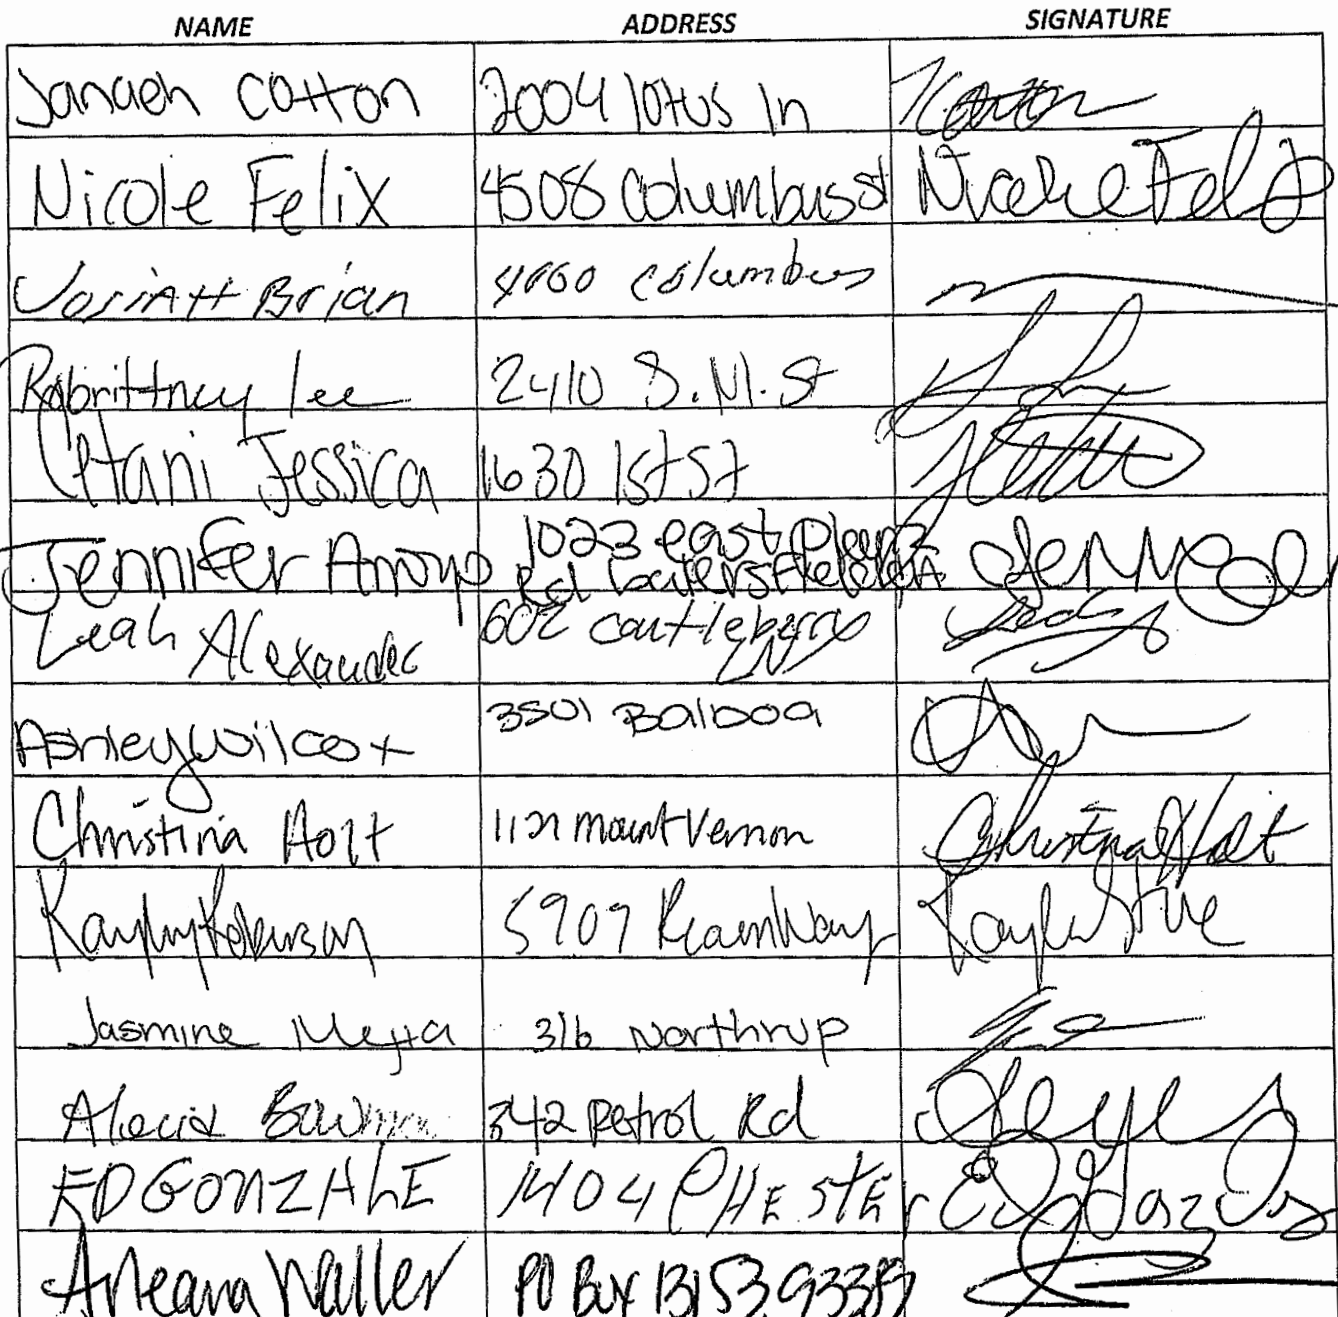 NAME ADDRESS SIGNATURE
Janaeh Cotton 2004 lotus ln
Nicole Felix 4508 Columbus st Nicole Felix
Brian 4660 Columbus
Rabrittney lee 2410 S. M. St
Jessica 1630 1st St
Jennifer Arroyo 1023 east Planz
Rd bakersfield CA
Leah Alexander 602 Castleberry
LN
Ashley Wilcox 3501 Balboa
Christina Holt 1121 Mount Vernon Christina Holt
5909
Jasmine Mejia 316 Northrup
Alecia 342 Petrol Rd
ED GONZALE 1404 CHESTEr
Arleana Waller PO Box 13153 93389